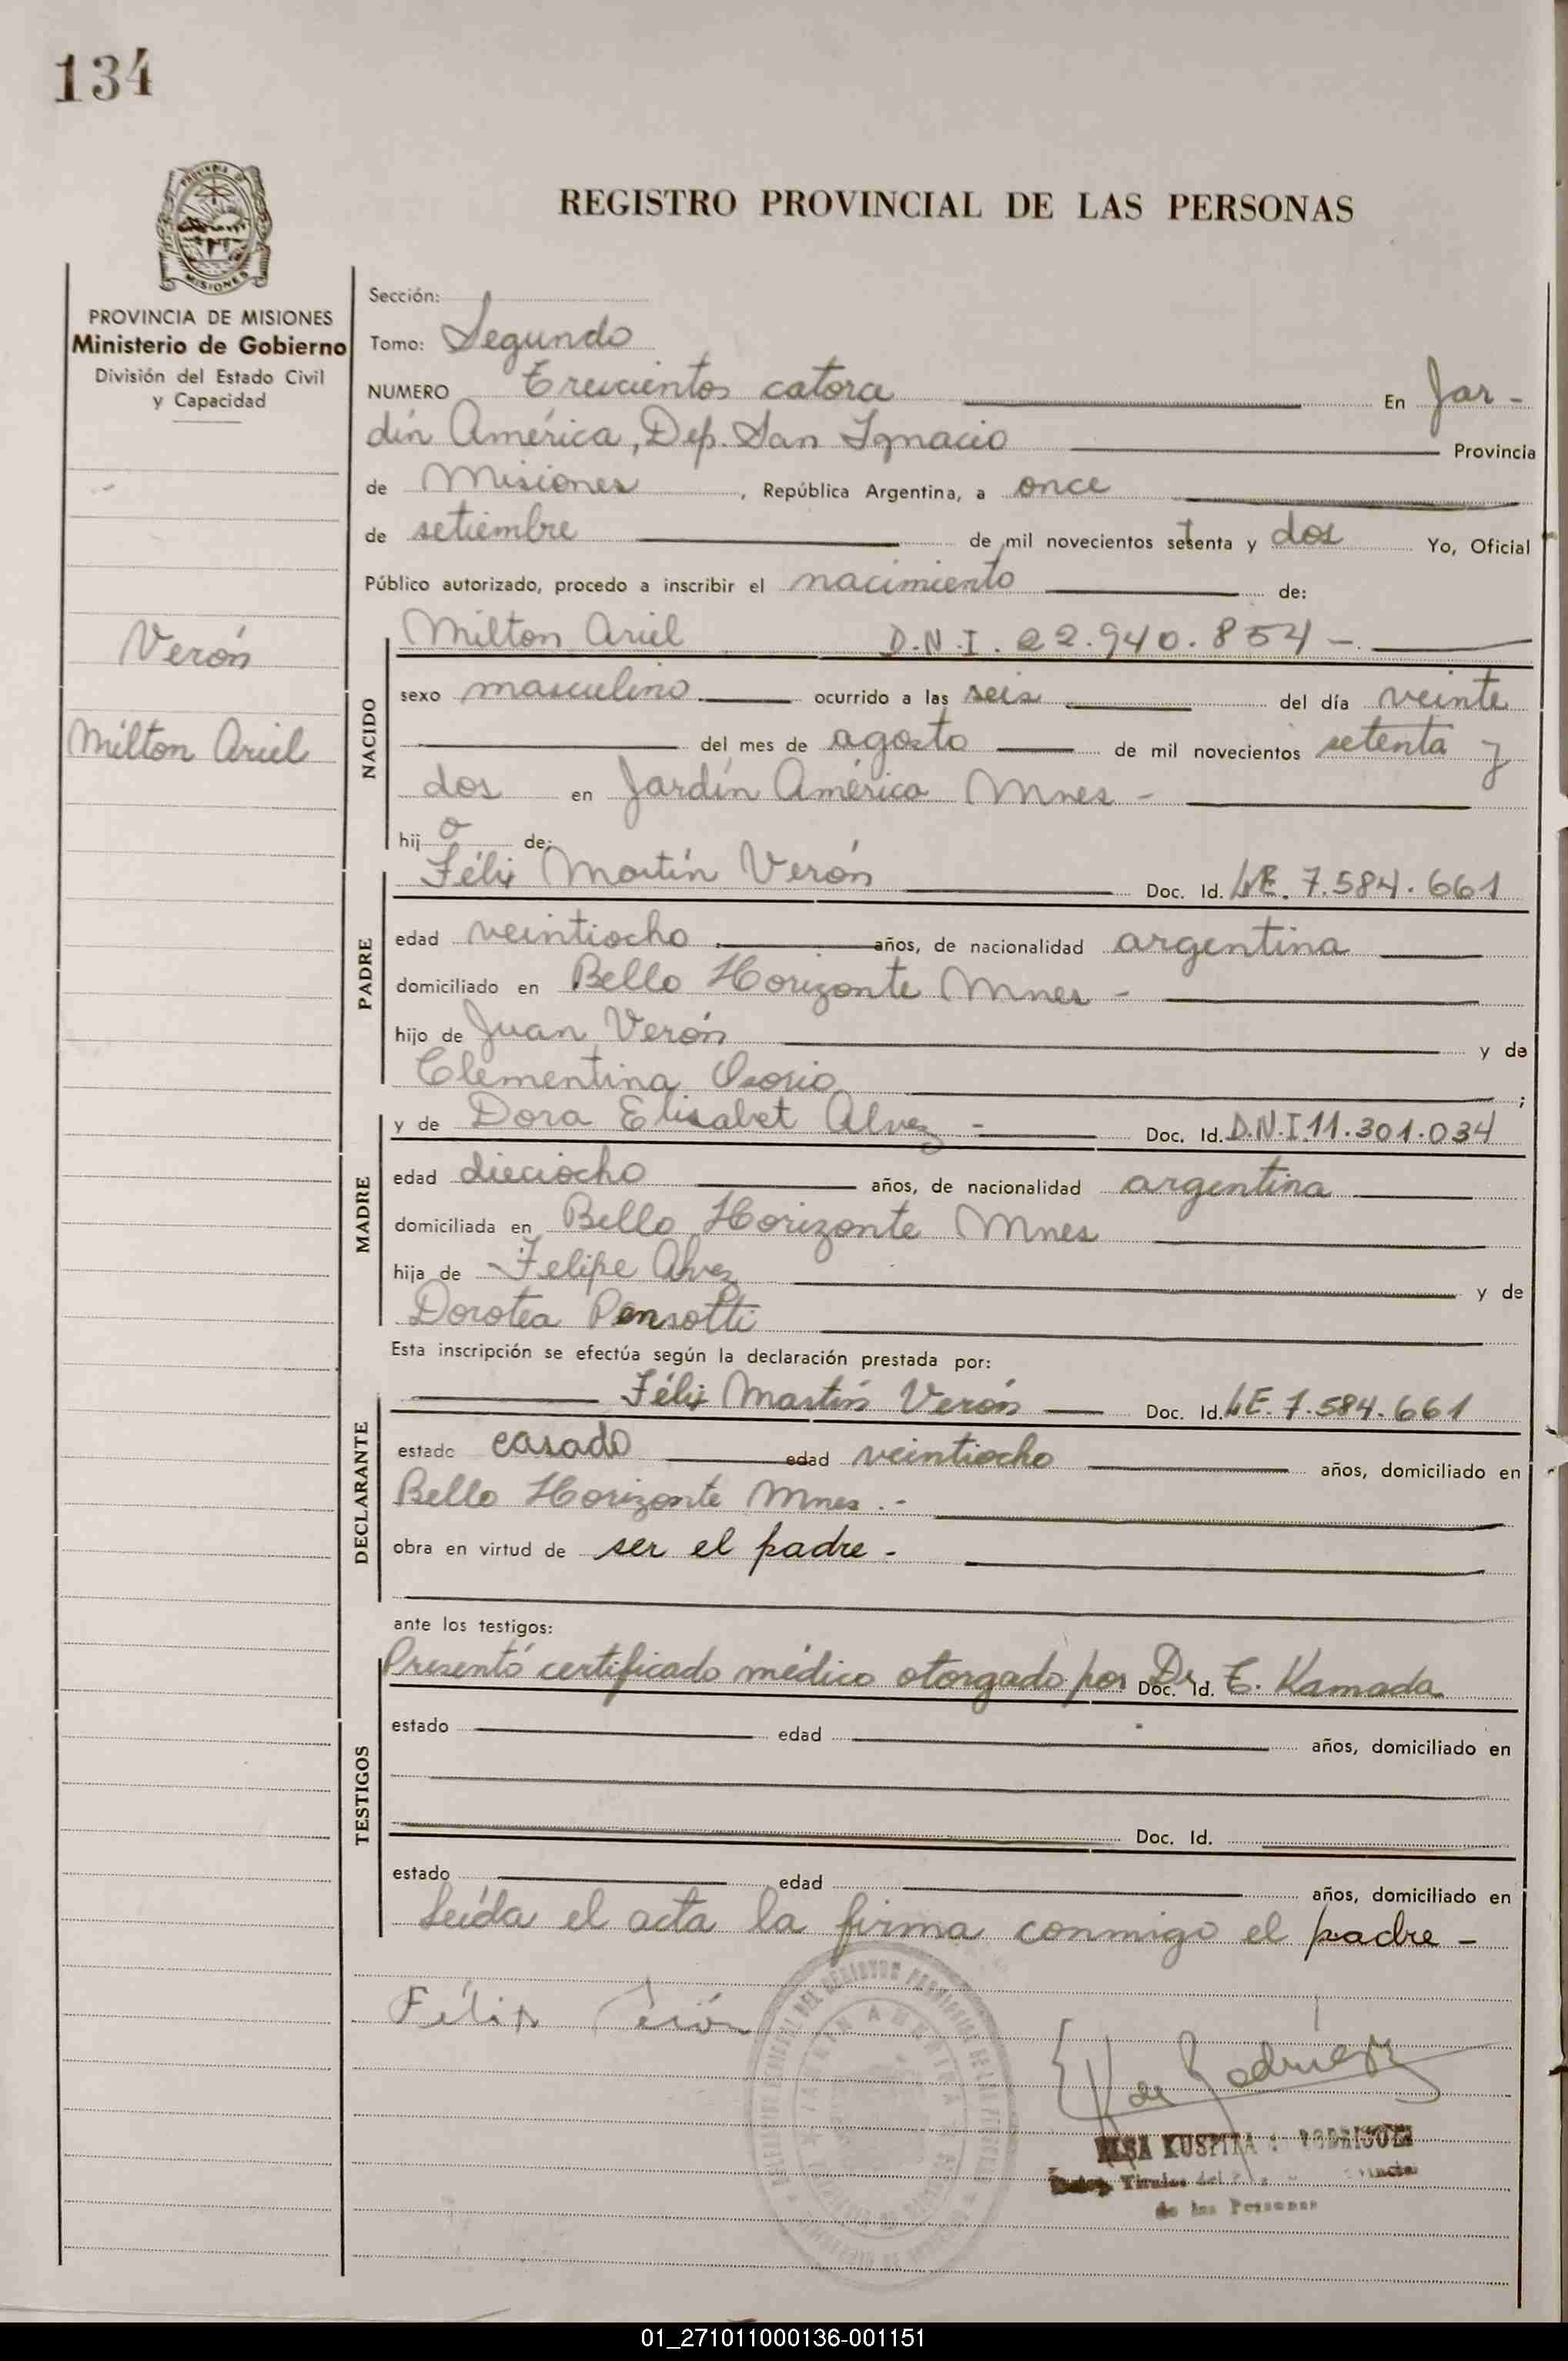 134
PROVINCIA DE MISIONES
REGISTRO PROVINCIAL DE LAS PERSONAS
PROVINCIA DE MISIONES
Ministerio de Gobierno
División del Estado Civil
y Capacidad
Verón
Milton Ariel
Sección:
Tomo: Segundo
NUMERO Trescientos catorce En Jar-
dín América, Dep. San Ignacio Provincia
de Misiones, República Argentina, a once
de setiembre de mil novecientos setenta y dos Yo, Oficial
Público autorizado, procedo a inscribir el nacimiento de:
NACIDO
Milton Ariel D.N.I. 22.940.854 -
sexo masculino ocurrido a las seis del día veinte
del mes de agosto de mil novecientos setenta y
dos en Jardín América Mnes -
hijo de:
PADRE
Félix Martín Verón Doc. Id. L.E. 7.584.661
edad veintiocho años, de nacionalidad argentina
domiciliado en Bello Horizonte Mnes -
hijo de Juan Verón y de
Clementina Osorio ;
MADRE
y de Dora Elisabet Alvez - Doc. Id. D.N.I 11.301.034
edad dieciocho años, de nacionalidad argentina
domiciliada en Bello Horizonte Mnes
hija de Felipe Alvez y de
Dorotea Ponsotti
Esta inscripción se efectúa según la declaración prestada por:
DECLARANTE
Félix Martín Verón Doc. Id. L.E. 7.584.661
estado casado edad veintiocho años, domiciliado en
Bello Horizonte Mnes .-
obra en virtud de ser el padre -
ante los testigos:
TESTIGOS
Presentó certificado médico otorgado por Dr. Doc. Id. T. Kamada
estado edad años, domiciliado en
Doc. Id.
estado edad años, domiciliado en
Leída el acta la firma conmigo el padre -
Félix Verón
K de Rodríguez
ELSA KUSPITA RODRIGUEZ
Titular del
de las Personas
JARDIN AMERICA
01_271011000136-001151